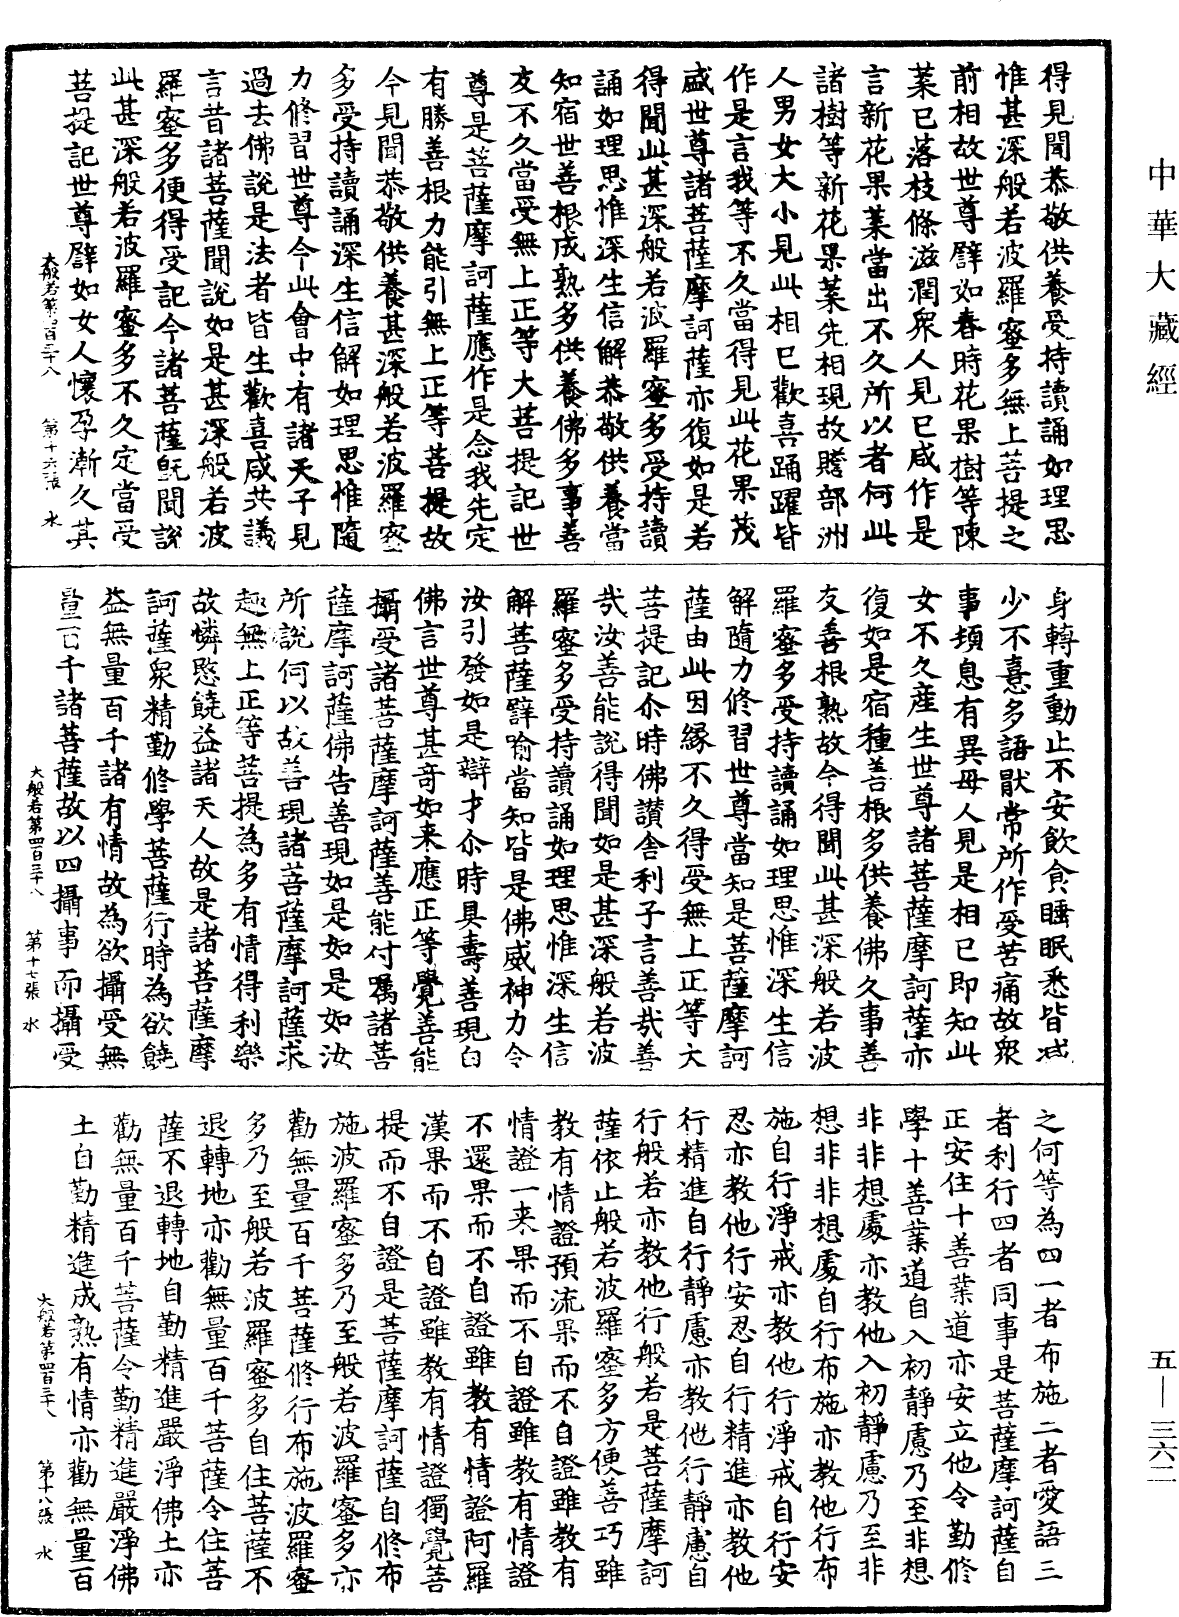 中華大藏經
得見聞恭敬供養受持讀誦如理思
惟甚深般若波羅蜜多無上菩提之
前相故世尊譬如春時花果樹等陳
葉已落枝條滋潤衆人見已咸作是
言新花果葉當出不久所以者何此
諸樹等新花果葉先相現故贍部洲
人男女大小見此相已歡喜踊躍皆
作是言我等不久當得見此花果茂
盛世尊諸菩薩摩訶薩亦復如是若
得聞此甚深般若波羅蜜多受持讀
誦如理思惟深生信解恭敬供養當
知宿世善根成熟多供養佛多事善
友不久當受無上正等大菩提記世
尊是菩薩摩訶薩應作是念我先定
有勝善根力能引無上正等菩提故
今見聞恭敬供養甚深般若波羅蜜
多受持讀誦深生信解如理思惟隨
力修習世尊今此會中有諸天子見
過去佛說是法者皆生歡喜咸共議
言昔諸菩薩聞說如是甚深般若波
羅蜜多便得受記今諸菩薩既聞說
此甚深般若波羅蜜多不久定當受
菩提記世尊譬如女人懷孕漸久其
大般若第四百三十八 第十六張 水
身轉重動止不安飲食睡眠悉皆減
少不憙多語猒常所作受苦痛故衆
事頓息有異母人見是相已即知此
女不久産生世尊諸菩薩摩訶薩亦
復如是宿種善根多供養佛久事善
友善根熟故今得聞此甚深般若波
羅蜜多受持讀誦如理思惟深生信
解隨力修習世尊當知是菩薩摩訶
薩由此因緣不久得受無上正等大
菩提記尒時佛讃舍利子言善哉善
哉汝善能說得聞如是甚深般若波
羅蜜多受持讀誦如理思惟深生信
解菩薩譬喻當知皆是佛威神力令
汝引發如是辯才尒時具壽善現白
佛言世尊甚奇如来應正等覺善能
攝受諸菩薩摩訶薩善能付囑諸菩
薩摩訶薩佛告善現如是如是如汝
所說何以故善現諸菩薩摩訶薩求
趣無上正等菩提為多有情得利樂
故憐愍饒益諸天人故是諸菩薩摩
訶薩衆精勤修學菩薩行時為欲饒
益無量百千諸有情故為欲攝受無
量百千諸菩薩故以四攝事而攝受
大般若第四百三十八 第十七張 水
之何等為四一者布施二者愛語三
者利行四者同事是菩薩摩訶薩自
正安住十善業道亦安立他令勤修
學十善業道自入初靜慮乃至非想
非非想處亦教他入初靜慮乃至非
想非非想處自行布施亦教他行布
施自行淨戒亦教他行淨戒自行安
忍亦教他行安忍自行精進亦教他
行精進自行靜慮亦教他行靜慮自
行般若亦教他行般若是菩薩摩訶
薩依止般若波羅蜜多方便善巧雖
教有情證預流果而不自證雖教有
情證一来果而不自證雖教有情證
不還果而不自證雖教有情證阿羅
漢果而不自證雖教有情證獨覺菩
提而不自證是菩薩摩訶薩自修布
施波羅蜜多乃至般若波羅蜜多亦
勸無量百千菩薩修行布施波羅蜜
多乃至般若波羅蜜多自住菩薩不
退轉地亦勸無量百千菩薩令住菩
薩不退轉地自勤精進嚴淨佛土亦
勸無量百千菩薩令勤精進嚴淨佛
土自勤精進成熟有情亦勸無量百
大般若第四百三十八 第十八張 水
五—三六二